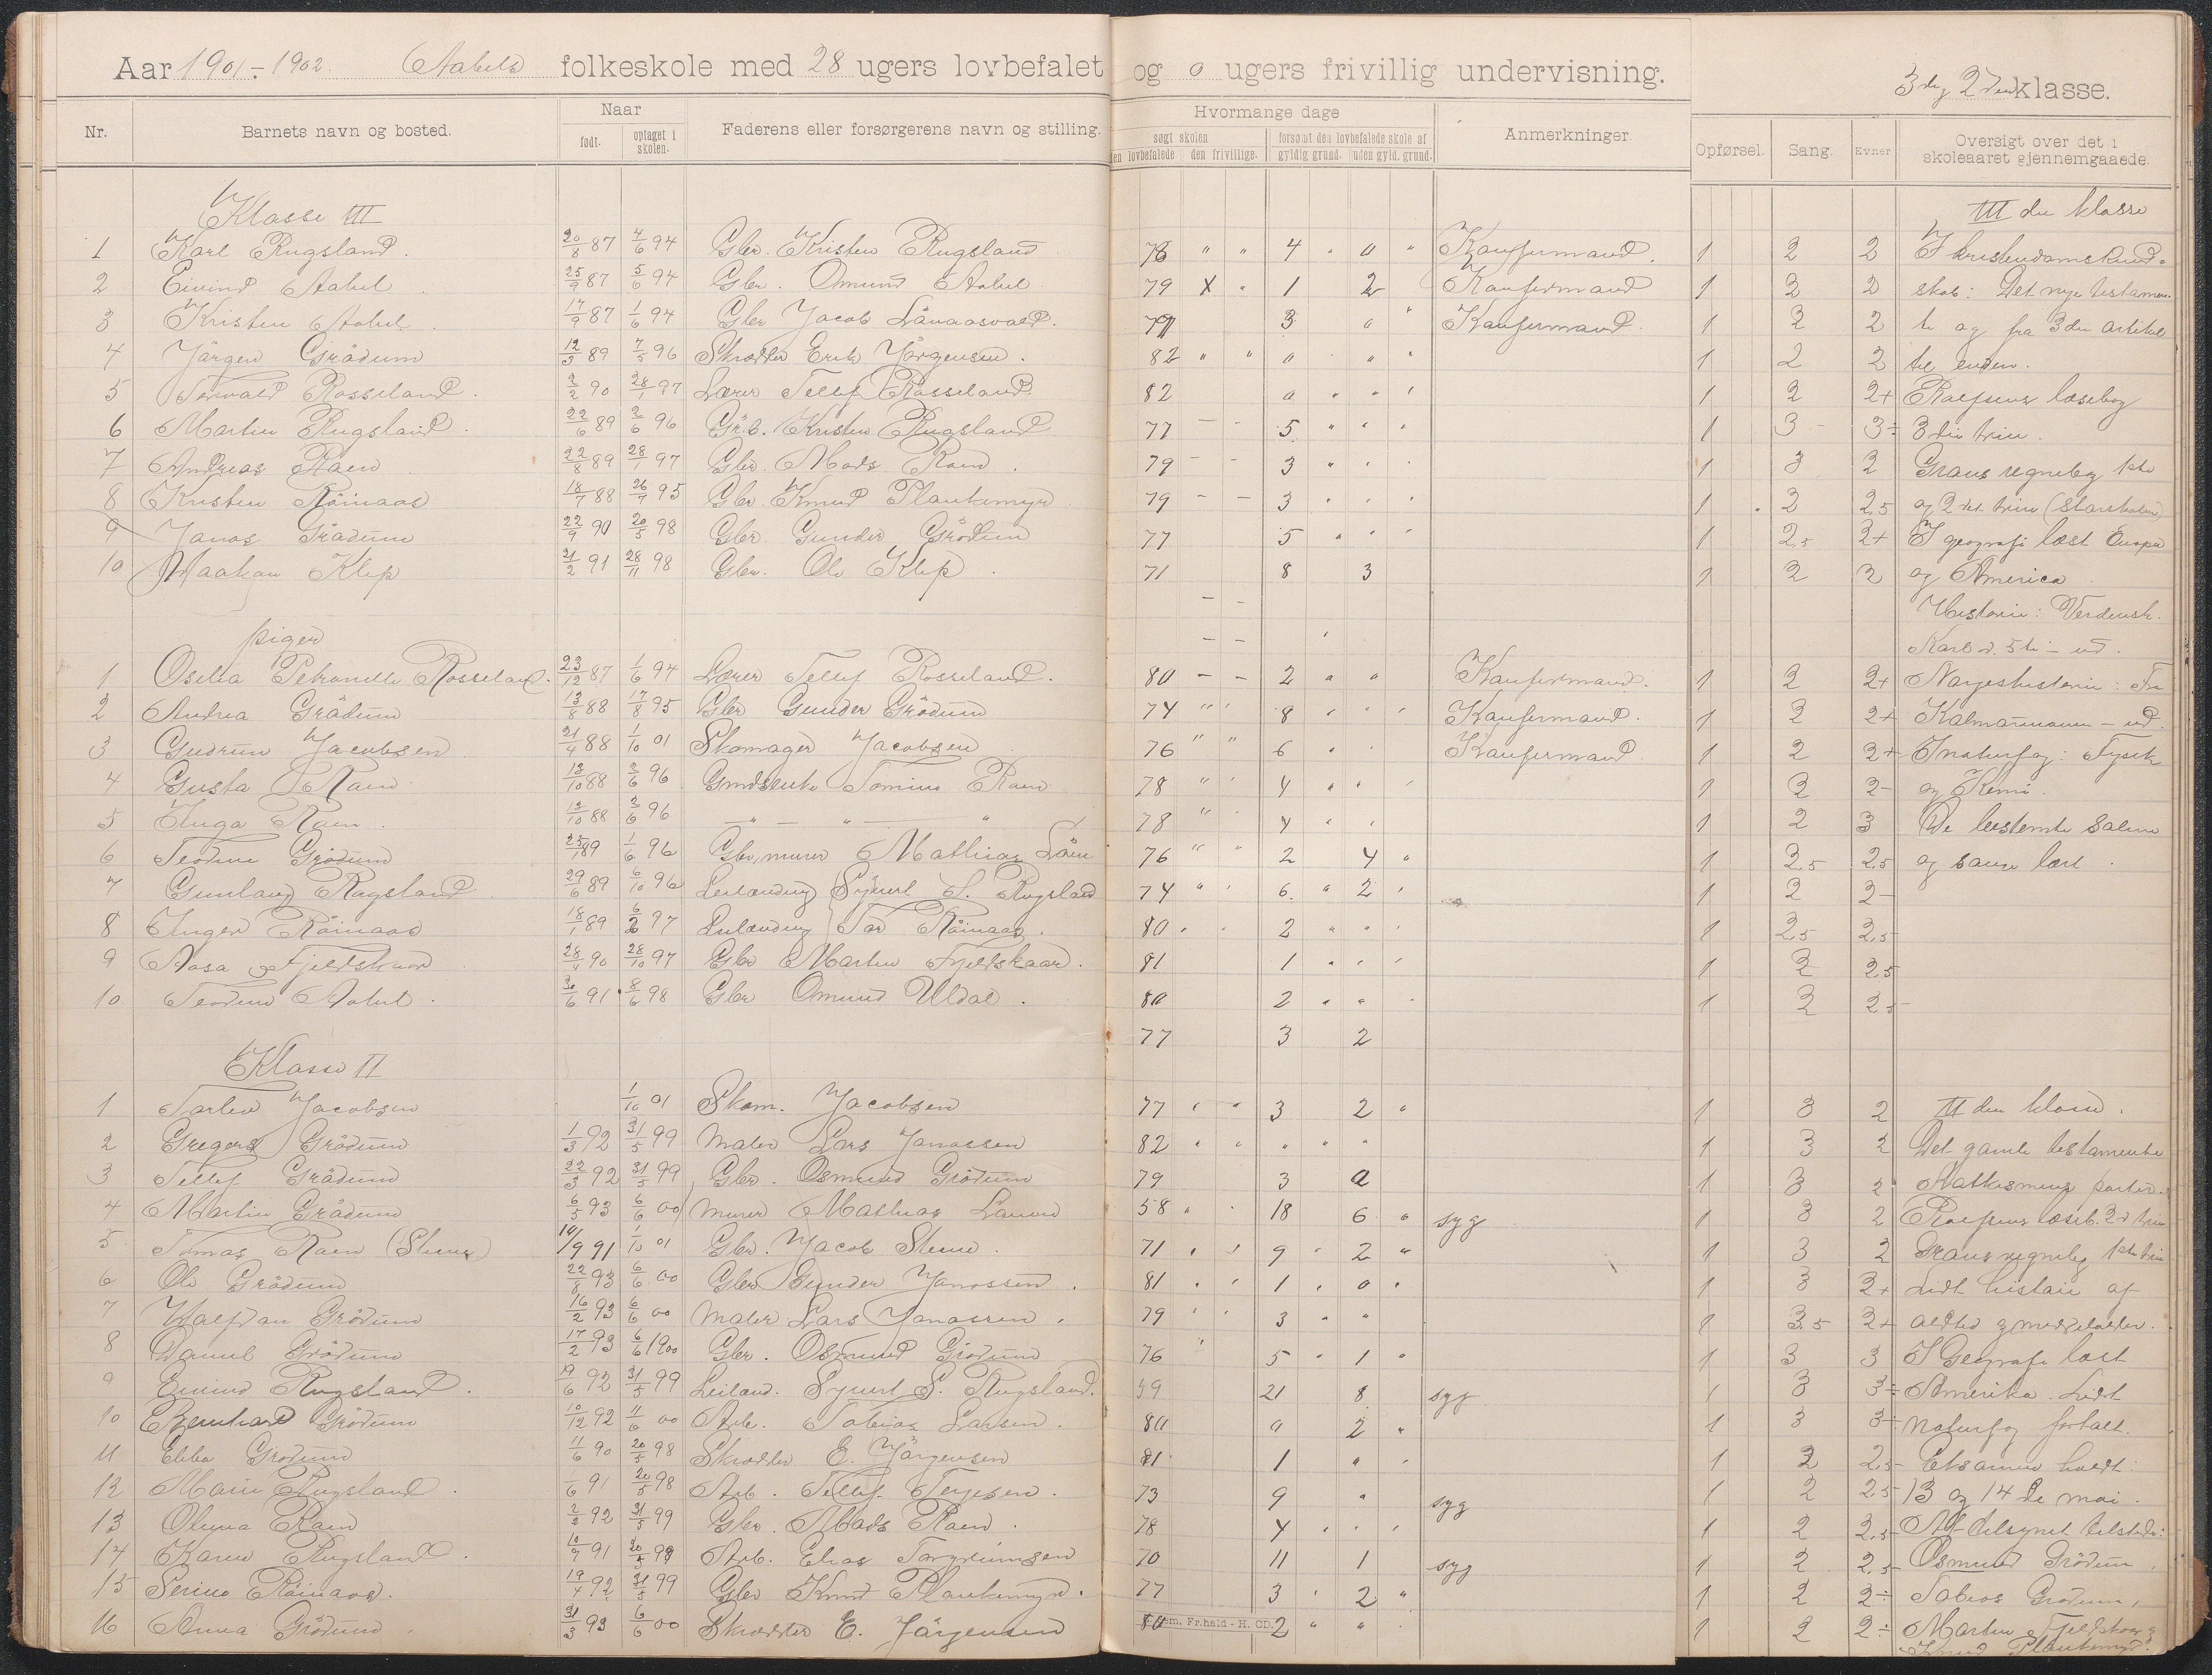 Aar 1901-1902. Aabels folkeskole med 28 ugers lovbefalet og 0 ugers frivillig undervisning.
3die og 2den klasse.
Nr. Barnets navn og bosted. Naar født. optaget i skolen. Faderens eller forsørgerens navn og stilling. Hvormange dage søgt skolen den lovbefalede den frivillige. forsømt den lovbefalede skole af gyldig grund. uden gyld. grund. Anmerkninger. Opførsel. Sang. Evner Oversigt over det i skoleaaret gjennemgaaede.
Klasse III III die klasse
1 Karl Rugsland. 20/8 87 4/6 94 Gbr. Kristen Rugsland 78 " " 4 " 0 " Konfirmand. 1 2 2 I kristendomskund-
2 Eivind Aabel 25/9 87 5/6 94 Gbr. Omund Aabel 79 X " 1 2 Konfirmand 1 3 2 skab: Det nye testamen-
3 Kristen Aabel. 17/9 87 1/6 94 Gbr Jacob 79 3 " " Konfirmand. 1 3 2 te og fra 3die artikel
4 Jörgen Grödum 12/3 89 7/5 96 Skrædder Erik Jörgensen. 82 " " " " " 1 2 2 til enden.
5 Torvald Rosseland. 2/2 90 28/1 97 Lærer Tellef Rosseland. 82 0 " " ' 1 2 2+ Rolfsens læsebog
6 Martin Rugsland. 22/6 89 2/6 96 Grb. Kristen Rugsland 77 - - 5 " " " 1 3 3÷ 3die trin.
7 Andreas Raen 22/8 89 28/1 97 Gbr. Mads Raen. 79 - - 3 " ' ' 1 3 2 Grans regnebog 1ste
8 Kristen Röinaas 18/7 88 26/7 95 Gbr. Knud Plankemyr 79 - - 3 " ' ' 1 2 2,5 og 2det trin
9 Janos Grödum 22/9 90 20/5 98 Gbr. Gunder Grödum 77 5 " ' ' 1 2,5 2+ I geografi læst Europa
10 Haakon Klep 21/2 91 28/11 98 Gbr. Ole Klep. 71 8 3 1 2 2 og America
- - Historie: Verdensh.
piger - - Karl d. 5te - ud.
1 Oselia Petronelle Rosseland. 23/12 87 1/6 94 Lærer Tellef Rosseland. 80 - - 2 " " Konfirmand. 1 2 2+ Norgeshistorie: Fra
2 Andrea Grödum 13/8 88 17/8 95 Gbr Gunder Grödum 74 " ' 8 ' ' ' Konfirmand. 1 2 2+ Kalmarunionen - ud.
3 Gudrun Jacobsen 21/4 88 1/10 01 Skomager Jacobsen 76 " " 6 " ' Konfirmand. 1 2 2+ I naturfag: Fysik
4 Gusta Raen 13/10 88 2/6 96 Raen 78 " ' 4 " " ' 1 2 2- og Kemi.
5 Inga Raen 13/10 88 2/6 96 — " — " — " 78 " ' 4 " ' 1 2 3 De bestemte salmer
6 Teodine Grödum 25/1 89 1/6 96 Gbr, murer Mathias 76 " " 2 4 " 1 2,5 2,5 og sange lært.
7 Gunlaug Rugsland 29/6 89 6/10 96 Leilænding Syvert S. Rugsland 74 " ' 6. " 2 ' 1 2 2-
8 Inger Röinaas 18/1 89 6/2 97 Leilænding Tor Röinaas. 80 ' ' 2 " " ' 1 2,5 2,5
9 Aasa Fjeldskaar 28/4 90 28/10 97 Gbr Martin Fjeldskaar. 81 1 " ' ' 1 2 2,5
10 Teodine Aabel. 30/6 91 8/6 98 Gbr Omund Uldal. 80 2 " " ' 1 2 2,5
77 3 2
Klasse II
1 Torleiv Jacobsen 1/10 01 Skom. Jacobsen 77 ' " 3 2 " 1 3 2 II den klasse.
2 Gregers Grödum 1/3 92 31/5 99 Maler Lars Janossen 82 ' ' " " " 1 3 2 Det gamle testamente
3 Tellef Grödum 22/3 92 31/5 99 Gbr. Osmund Grödum 79 3 0 1 3 2 Katkismens parter.
4 Martin Grödum 6/5 93 6/6 00 murer Mathias 58 " ' 18 6 " syg 1 3 2 Rolfsens læseb. 2d trin
5 Tomas Raen (Steene) 10/9 91 1/10 01 Gbr. Jacob Steene. 71 ' ' 9 ' 2 " 1 3 2 Grans regnebog 1ste trin
6 Ole Grödum 22/8 93 6/6 00 Gbr Gunder Janossen. 81 ' ' 1 ' 0 ' 1 3 2+ Lidt histoie af
7 Halfdan Grödum 16/2 93 6/6 00 Maler Lars Janossen. 79 ' ' 3 " " 1 3.5 2+ oldtid og middelalder.
8 Daniel Grödum 17/2 93 6/6 1900 Gbr. Osmund Grödum 76 ' 5 " 1 " 1 3 3 I Geografi læst
9 Eivind Rugsland. 19/6 92 31/5 99 Leilænd. Syvert S. Rugsland. 59 21 8 syg 1 3 3÷ Amerika. Lidt
10 Bernhard Grödum 10/12 92 11/6 00 Arb. Tobias Larsen. 80 0 2 " 1 3 3÷ naturfag fortalt.
11 Ebba Grödum 11/6 90 20/5 98 Skrædder E. Jörgensen 81 1 " ' 1 2 2,5 Eksamen holdt:
12 Marie Rugsland. 1/6 91 20/5 98 Arb. Tellef Terjesen. 73 9 " syg 1 2 2,5 13 og 14de mai.
13 Olena Raen 2/2 92 31/5 99 Gbr. Mads Raen. 78 4 ' ' ' 1 2 2,5 Af tilsynet tilstede:
14 Karen Rugsland. 10/7 91 20/5 99 Arb. Elias Torgrimsen 70 11 1 syg 1 2 2,5 Osmund Grödum,
15 Serine Röinaas. 19/4 92 31/5 99 Gbr Knud Plankemyr. 77 3 ' 2 " 1 2 2÷ Tobias Grödum,
16 Anna Grödum. 31/3 93 6/6 00 Skrædder E. Jörgensen 80 2 " " 1 2 2÷ Martin Fjeldskaar,
Fr.hald - H. CD. Knud Plankemyr.